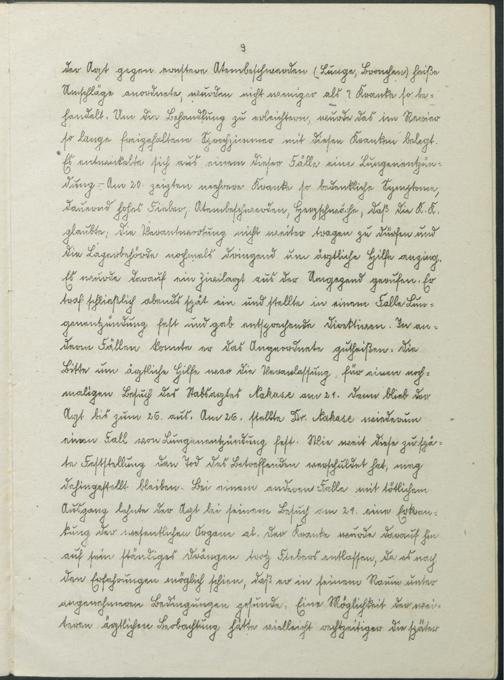 9
der Arzt gegen ernstere Atembeschwerden (Lunge, Bronchen) heiße
Umschläge anordnete, wurden nicht weniger als 7 Kranke so be-
handelt. Um die Behandlung zu erleichtern, wurde das im Revier
so lange freigehaltene Sprechzimmer mit diesen Kranken belegt.
Es entwickelte sich aus einem dieser Fälle eine Lungenentzün-
dung. Am 20. zeigten mehrere Kranke so bedenkliche Symptome,
dauernd hohes Fieber, Atembeschwerden, Herzschwäche, daß die S.K.
glaubte, die Verantwortung nicht weiter tragen zu dürfen und
die Lagerbehörde nochmals dringend um ärztliche Hilfe anging.
Es wurde darauf ein Zivilarzt aus der Umgegend gerufen. Er
traf schließlich abends spät ein und stellte in einem Falle Lun-
genentzündung fest und gab entsprechende Direktiven. In an-
dern Fällen konnte er das Angeordnete gutheißen. Die
Bitte um ärztliche Hilfe war die Veranlassung, für einen noch-
maligen Besuch des Stabsarztes Nakase am 21. Dann blieb der
Arzt bis zum 26. aus. Am 26. stellte Dr. Nakase wiederum
einen Fall von Lungenentzündung fest. Wie weit diese zu spä-
te Feststellung den Tod des Betreffenden verschuldet hat, mag
dahingestellt bleiben. Bei einem anderen Falle mit tötlichem
Ausgang lehnte der Arzt bei seinem Besuch am 21. eine Erkran-
kung der wesentlichen Organe ab. Der Kranke wurde darauf hin
auf sein ständiges Drängen trotz Fiebers entlassen, da es nach
den Erfahrungen möglich schien, daß er in seinem Raum unter
angenehmeren Bedingungen gesunde. Eine Möglichkeit der wei-
teren ärztlichen Beobachtung hätte vielleicht rechtzeitiger die später